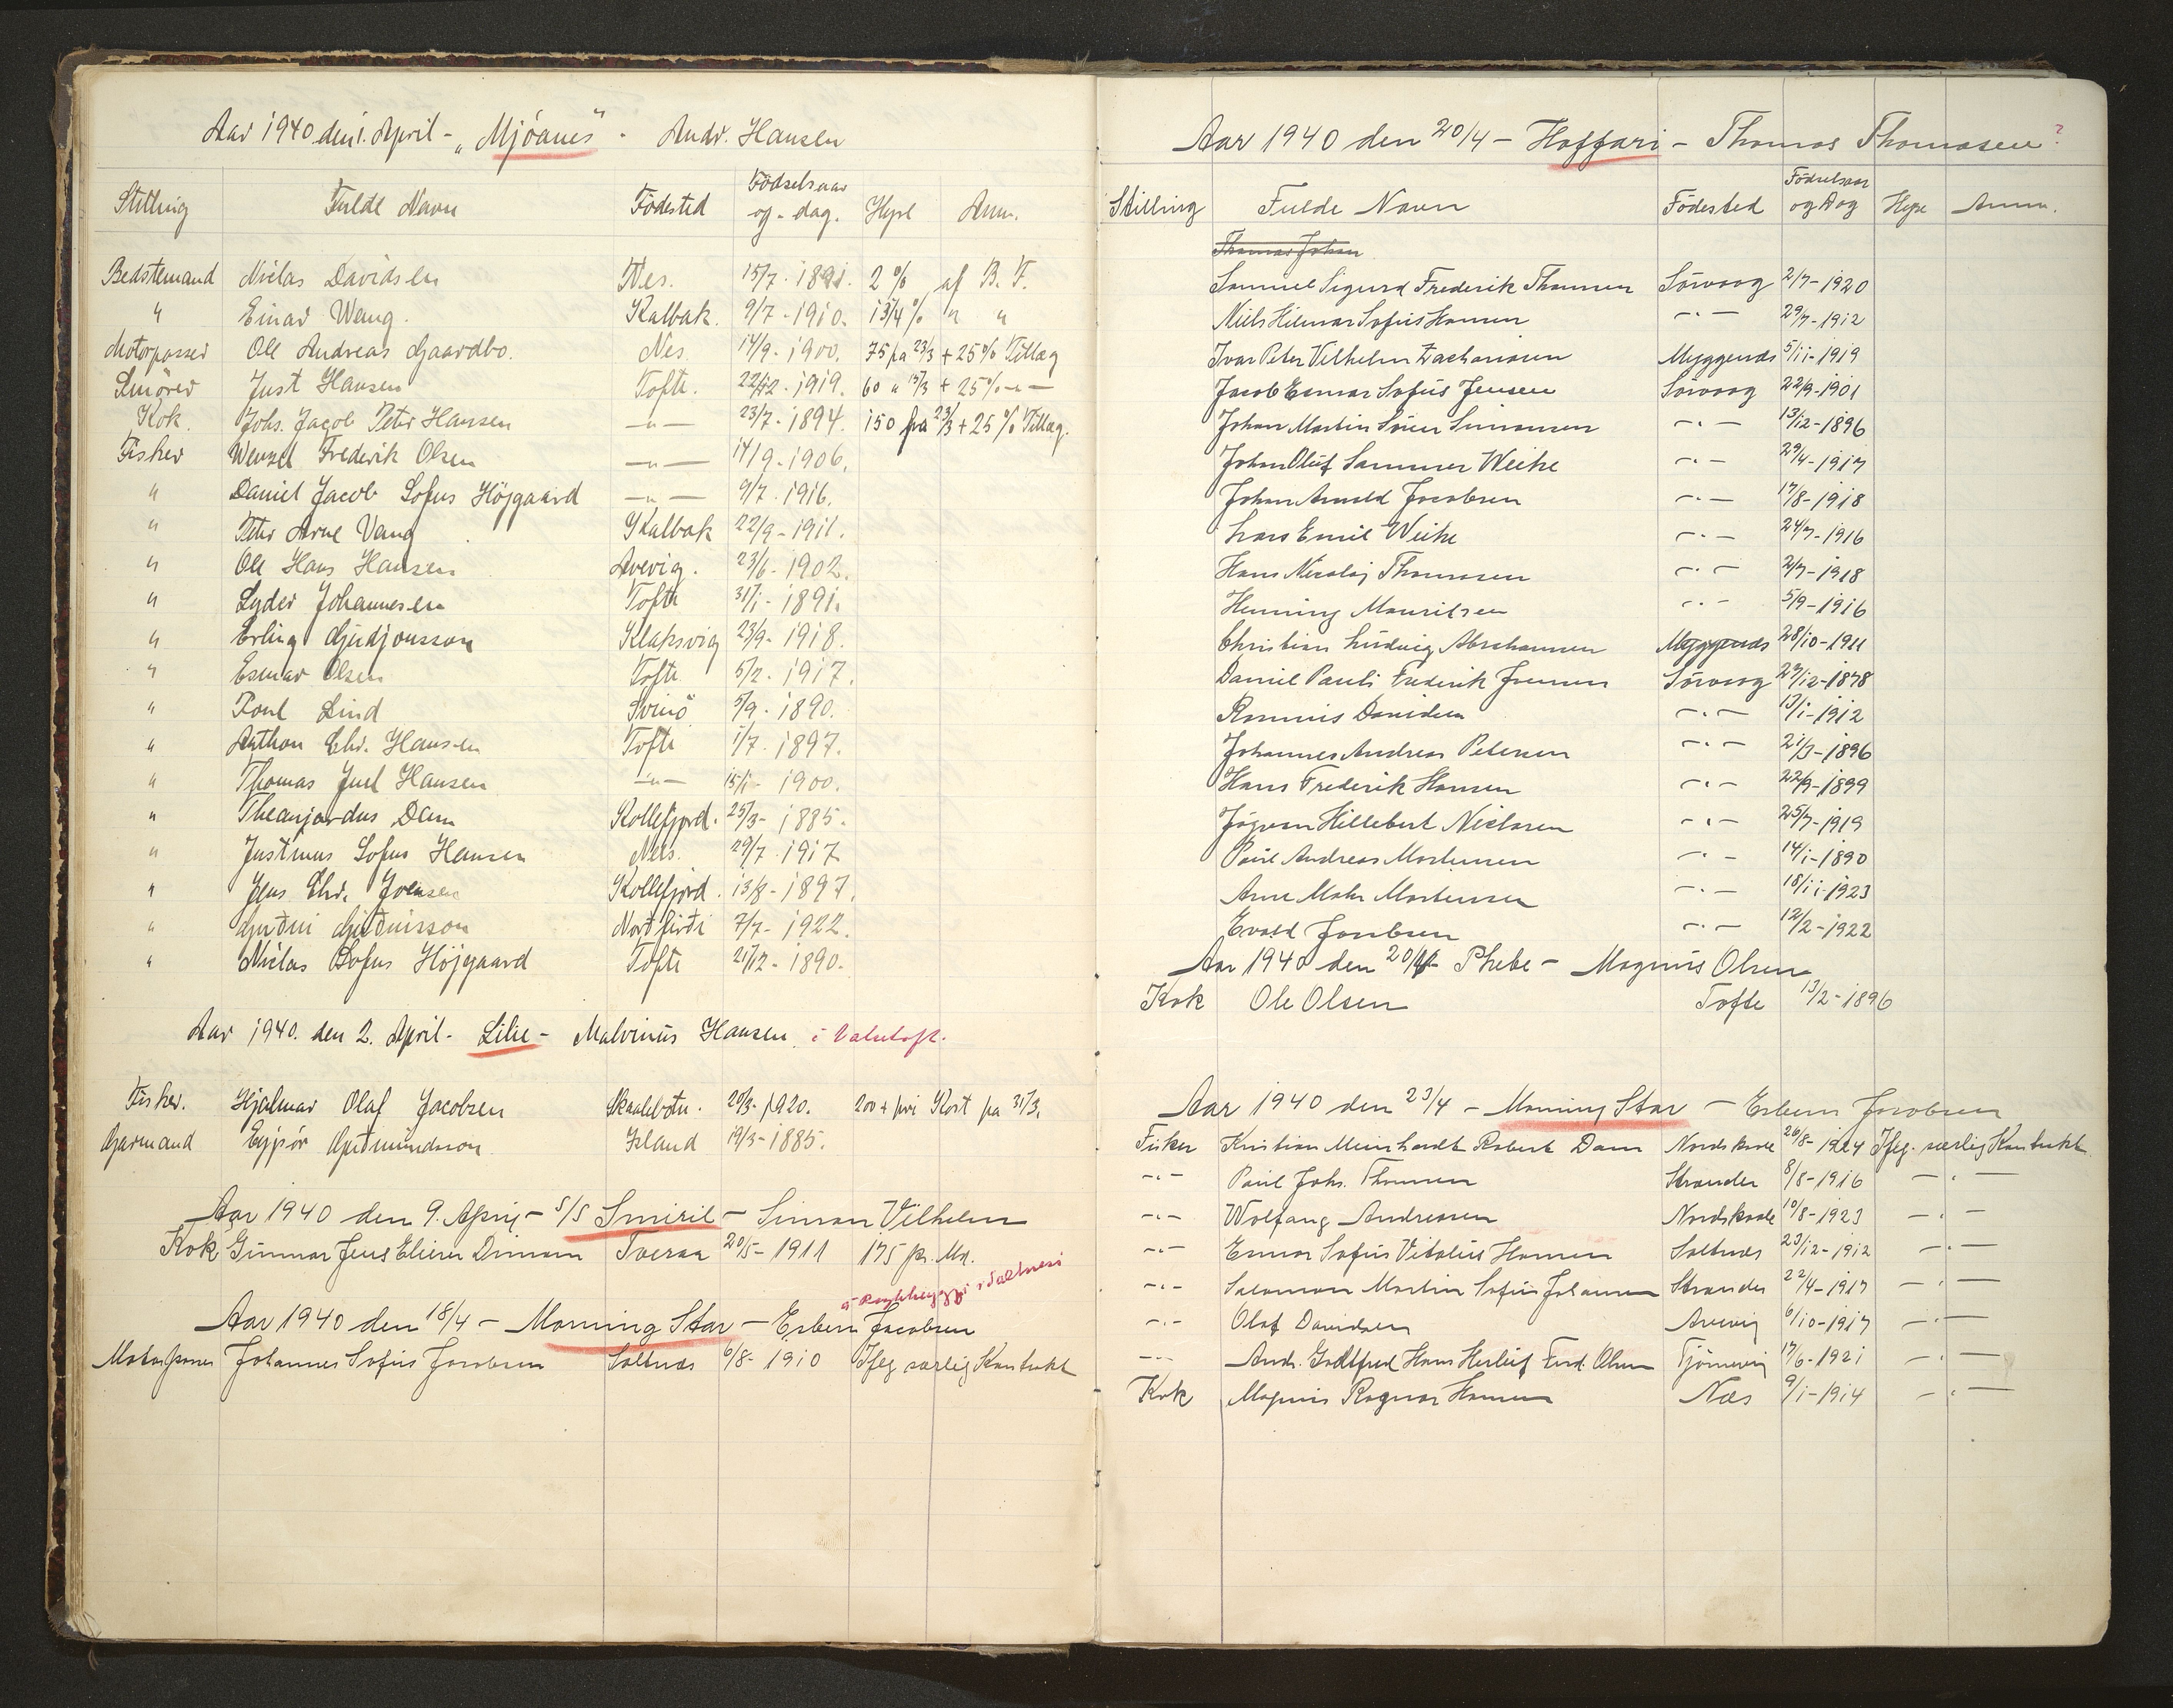 Aar 1940 den 1. April - „Mjóanes" - Andr. Hansen
Stilling Fulde Navn Födested Födselsaar og - dag. Hyre Anm.
Bedstemand Niclas Davidsen Nes. 15/7 - 1891. 2 % af B. F.
" Einar Wang. Kalbak. 9/7 - 1910. 1 3/4 % " "
Motorpasser Ole Andreas Gaardbo. Nes. 14/9 - 1900. 75 fra 23/3 + 25 % Tillæg
Smörer Just Hansen Tofte. 22/12 - 1919. 60 " 15/3 + 25 % - " -
Kok. Johs. Jacob Peter Hansen - " - 23/7 - 1894. 150 fra 23/3 + 25 % Tillæg.
Fisker Wenzel Frederik Olsen - " - 14/9 - 1906.
" Daniel Jacob Sofus Höjgaard - " - 9/7 - 1916.
" Peter Arne Vang Kalbak 22/9 - 1911.
" Ole Hans Hansen Arevig. 23/6 - 1902.
" Lyder Johannesen Tofte 31/1 - 1891.
" Erling Gudjonsson Klaksvig 23/9 - 1918.
" Esmar Olsen Tofte 5/2 - 1917.
" Poul Lind Svinö 5/9 - 1890.
" Anthon Chr. Hansen Tofte 1/7 - 1897.
" Thomas Juul Hansen - " - 15/1 - 1900.
" Dam Kollefjord. 25/3 - 1885.
" Justinus Sofus Hansen Nes. 29/7 - 1917
" Jens Chr. Joensen Kollefjord. 13/8 - 1897.
" Guðni Guðnisson Norðfirði 7/7 - 1922.
" Niclas Sofus Höjgaard Tofte 21/12 - 1890.
Aar 1940. den 2. April - Lilie - Malvinus Hansen.
Fisker. Hjalmar Olaf Jacobsen Skaalebotn. 29/3 - 1920. 200 + fri Kost fra 31/3.
Garmand Guðmundsson Island 19/3 - 1885.
Aar 1940 den 9. April - S/S Smiril - Simon Vilhelm
Kok Gunnar Jens Elieser Dimon Tveraa 20/5 - 1911 175 pr. Md.
Aar 1940 den 18/4 - Morning Star - Esbern Jacobsen
Motorpasser Johannes Sofus Jacobsen Saltnæs 6/8 - 1910 Ifлg. særlig Kontrakt
Aar 1940 den 20/4 - Haffari - Thomas Thomasen ?
Stilling Fulde Navn Födested Födselsaar og Dag Hyre Anm.
Thomas Johan
Samuel Sigurd Frederik Thomsen Sörvaag 2/7 - 1920
Niels Hilmar Sofus Hansen - " - 29/7 - 1912
Ivar Peter Vilhelm Zachariasen Myggenæs 5/11 - 1919
Jacob Esmar Sofus Jensen Sörvaag 22/9 - 1901
Johan Martin Sörer Simonsen - " - 13/12 - 1896
Johan Oluf Sammer Weihe - " - 29/4 - 1917
Johan Arnold Jacobsen - " - 17/8 - 1918
Lars Emil Weihe - " - 24/7 - 1916
Hans Nicolaj Thomasen - " - 2/7 - 1918
Henning Mauritsen - " - 5/9 - 1916
Christian Ludvig Abrahamsen Myggenæs 28/10 - 1911
Daniel Pauli Frederik Joensen Sörvaag 27/12 - 1878
Rasmus Davidsen - " - 13/1 - 1912
Johannes Andreas Petersen - " - 21/3 - 1896
Hans Frederik Hansen - " - 22/9 - 1899
Jógvan Hillebert Niclasen - " - 25/7 - 1919
Paul Andreas Mortensen - " - 14/1 - 1890
Arne Mohr Mortensen - " - 18/11 - 1923
Evald Jacobsen - " - 12/2 - 1922
Aar 1940 den 20/4 - Phebe - Magnus Olsen
Kok Ole Olsen Tofte 13/2 - 1896
Aar 1940 den 23/4 - Morning Star - Esbern Jacobsen
Fisker Kristian Meinhardt Robert Dam Nordskaale 26/8 - 1924 Iflg. særlig Kontrakt
- " - Paul Johs. Thomsen Strander 8/8 - 1916 - " -
- " - Wolfang Andreasen Nordskaale 10/8 - 1923 - " -
- " - Esmar Sofus Vitalius Hansen Saltnæs 23/12 - 1912 - " -
- " - Salomon Martin Sofus Johansen Strander 22/4 - 1917 - " -
- " - Olaf Davidsen Arevig 6/10 - 1917 - " -
- " - Andr. Godtfred Hans Herluf Ferd. Olsen Tjörnevig 17/6 - 1921 - " -
Kok Magnus Ragnar Hansen Næs 9/1 - 1914 - " -